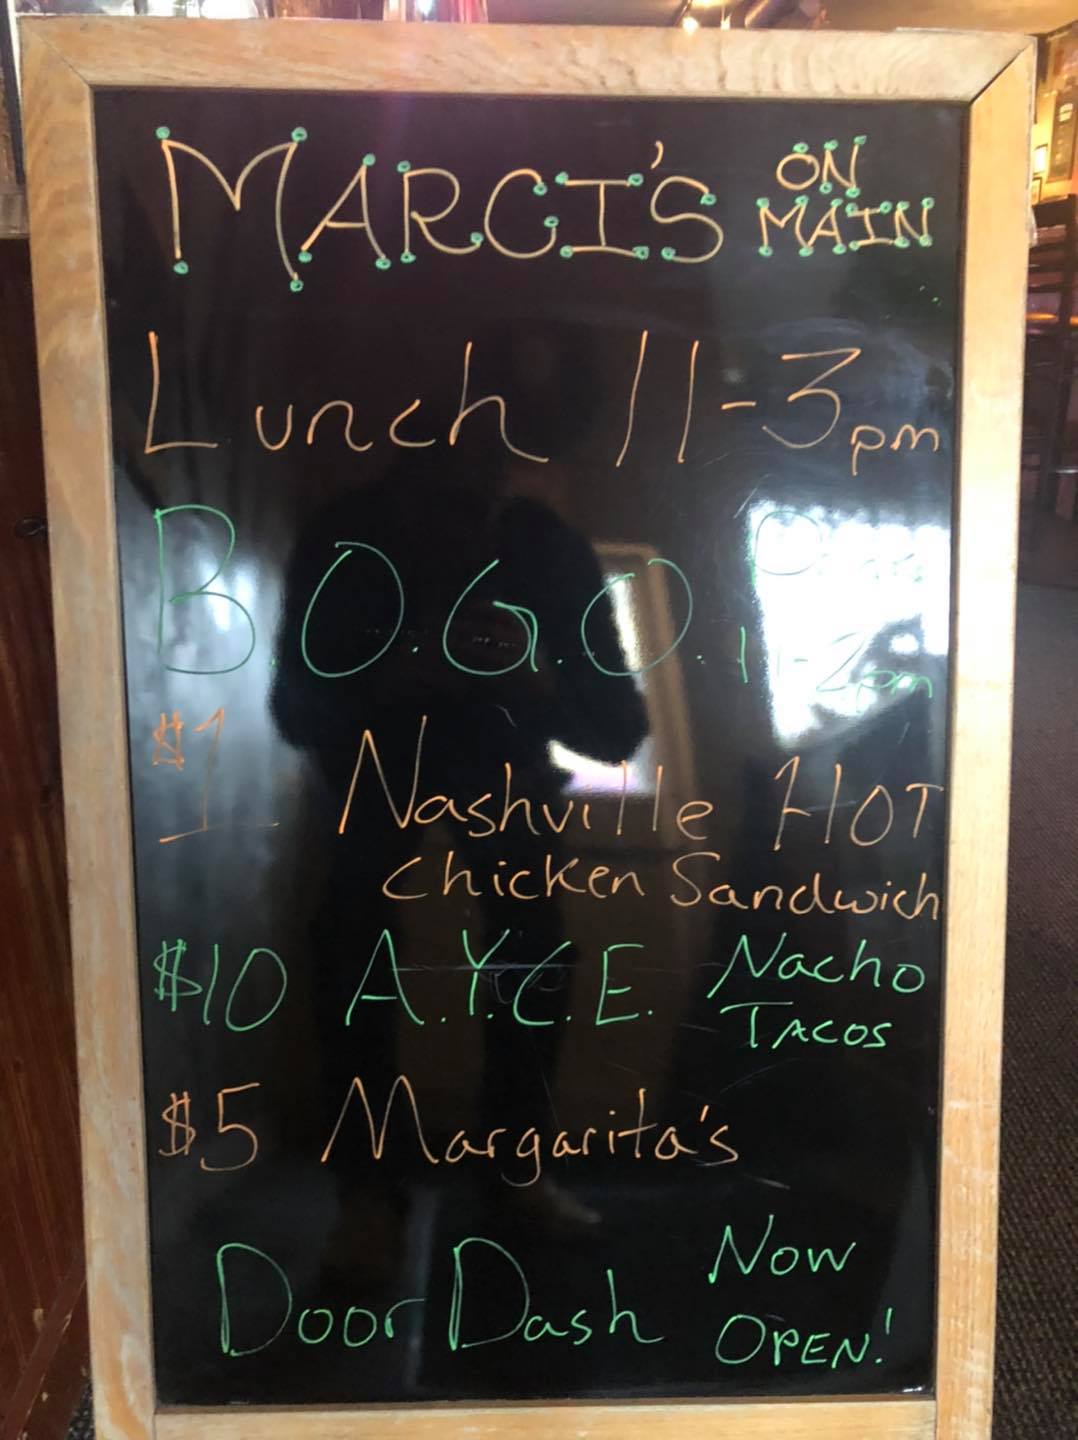 MARCI'S ON MAIN
Lunch 11-3pm
B.O.G.O. Drinks
11-2pm
$1 Nashville HOT
Chicken Sandwich
$10 A.Y.C.E. Nacho
TACOS
$5 Margarita's
DoorDash Now
OPEN!